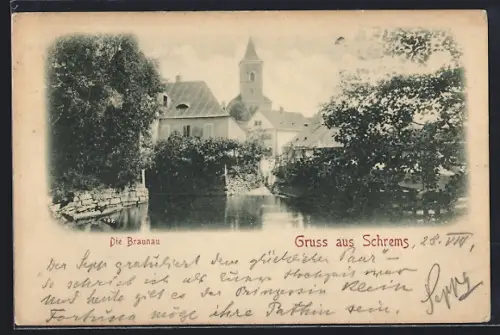 Die Braunau
Gruss aus Schrems, 28. VIII.
Der Sepp gratuliert dem glücklichen Paar" –
so schrieb ich als Hochzeit war
Und heute gilt es der Prinzessin Klein
Fortuna möge ihre Pathin sein.
Sepp